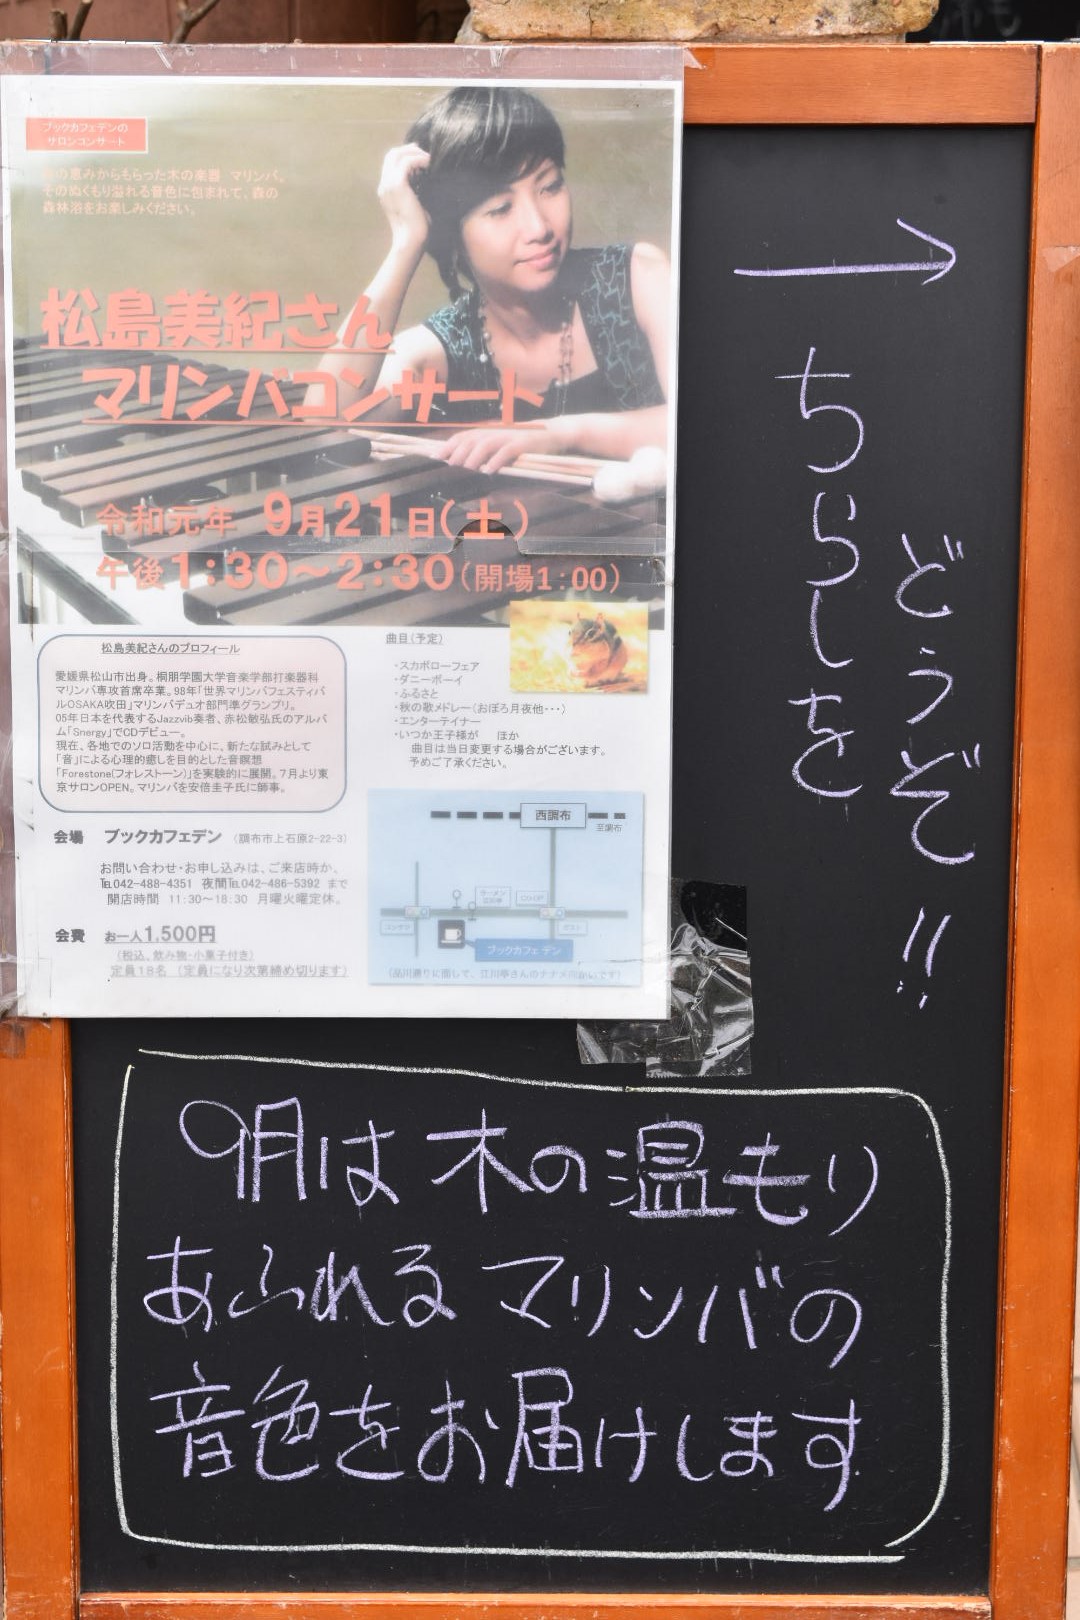 ブックカフェデンの
サロンコンサート
の恵みからもらった木の楽器 マリンバ。
そのぬくもり溢れる音色に包まれて、森の
森林浴をお楽しみください。
松島美紀さん
マリンバコンサート
令和元年 9月21日(土)
午後1:30～2:30(開場1:00)
松島美紀さんのプロフィール
愛媛県松山市出身。桐朋学園大学音楽学部打楽器科
マリンバ専攻首席卒業。98年「世界マリンバフェスティバ
ルOSAKA吹田」マリンバデュオ部門準グランプリ。
05年日本を代表するJazzvib奏者、赤松敏弘氏のアルバ
ム「Snergy」でCDデビュー。
現在、各地でのソロ活動を中心に、新たな試みとして
「音」による心理的癒しを目的とした音瞑想
「Forestone(フォレストーン)」を実験的に展開。7月より東
京サロンOPEN。マリンバを安倍圭子氏に師事。
曲目(予定)
・スカボローフェア
・ダニーボーイ
・ふるさと
・秋の歌メドレー(おぼろ月夜他・・・)
・エンターテイナー
・いつか王子様が ほか
曲目は当日変更する場合がございます。
予めご了承ください。
会場 ブックカフェデン (調布市上石原2-22-3)
お問い合わせ・お申し込みは、ご来店時か、
℡042-488-4351 夜間℡042-486-5392 まで
開店時間 11:30～18:30 月曜火曜定休。
会費 お一人1,500円
(税込、飲み物・小菓子付き)
定員18名 (定員になり次第締め切ります)
西調布
至調布
ラーメン
ブックカフェ デン
(品川通りに面して、江川亭さんのナナメ向かいです)
→
ちらしを
どうぞ!!
9月は木の温もり
あふれるマリンバの
音色をお届けします